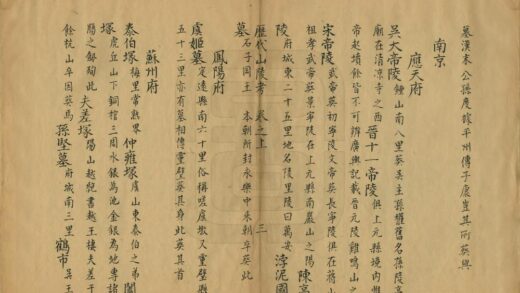 墓漢末公孫度據平州傳子康豈其所葬與
南京
應天府
吳大帝陵 鍾山南八里葬吳主孫權舊名孫陵
廟在清凉寺之西 晉十一帝陵 俱上元縣境內
帝起墳餘皆不可辨廣輿記載晉元陵雞鳴山之
宋帝陵 武帝葬初寧陵文帝葬長寧陵俱在蔣山
祖孝武帝葬景寧陵在上元縣南巖山之陽 陳
陵 府城東二十五里地名陵里陵曰萬安 浡泥國
墓 石子岡王 本朝所封永樂中來朝卒葬此
歷代山陵考 卷之上 三
鳳陽府
虞姬墓 定遠縣南六十里俗稱嗟虞墩又靈壁縣
五十三里亦有墓相傳靈壁葬其身此葬其首
蘇州府
泰伯塚 梅里常熟界 仲雍塚 虞山東泰伯之弟 闔
塚 虎丘山下銅棺三周水銀為池金銀為地專諸
之劔殉此 夫差塚 陽山越絕書越王棲夫差于
餘杭山卒因葬焉 孫堅墓 府城南三里 鶴市 吳王